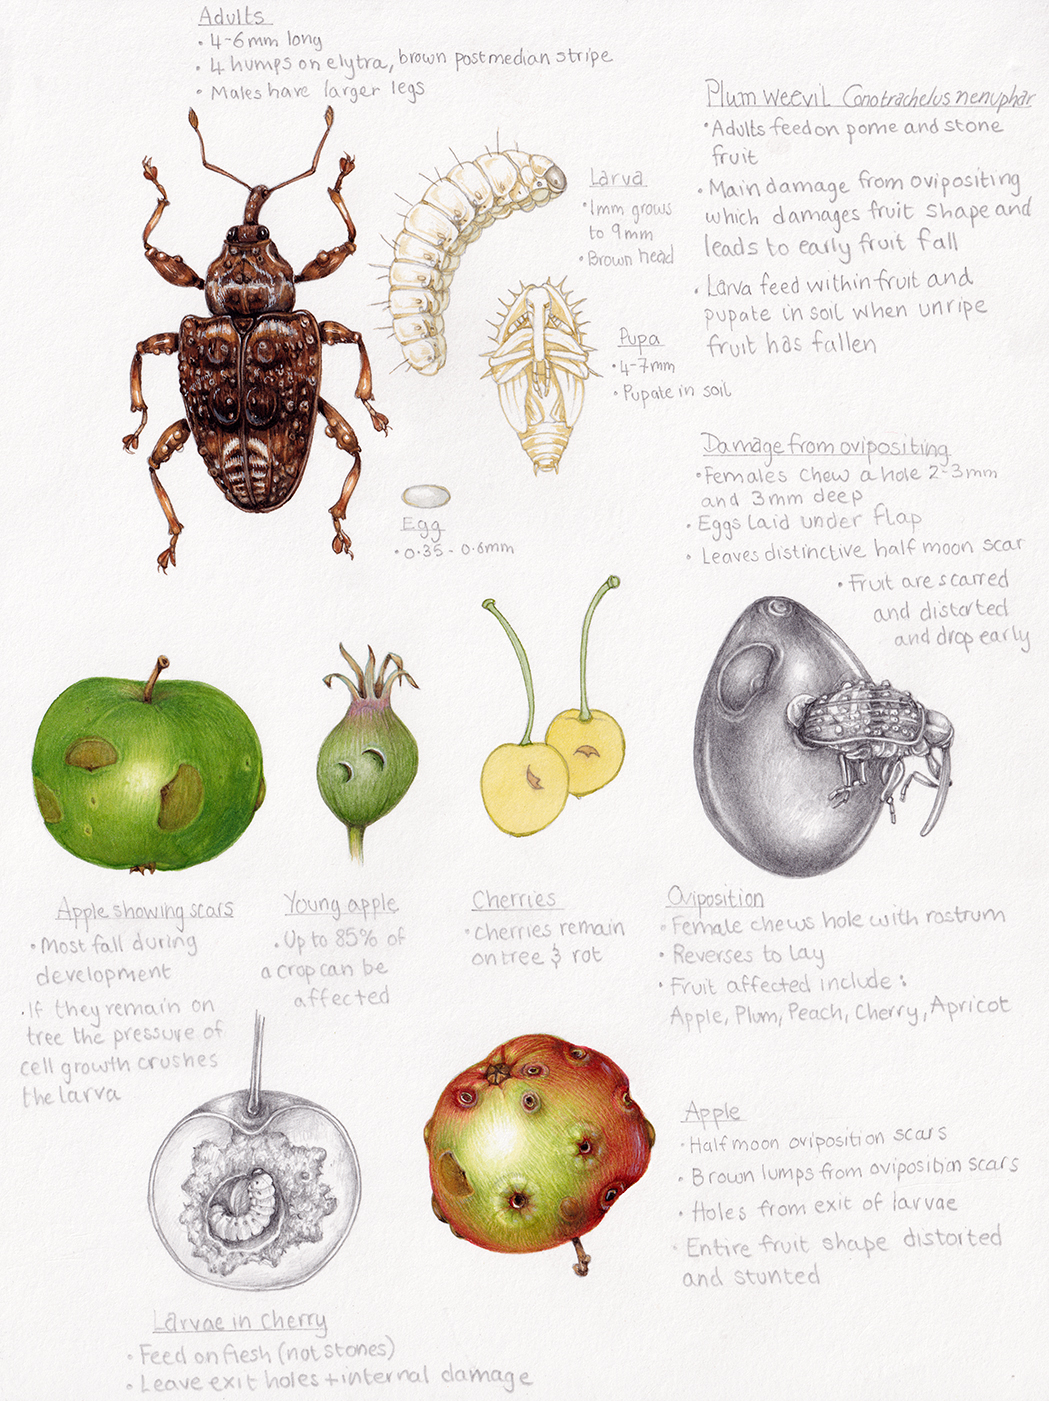 Adults
• 4-6mm long
• 4 humps on elytra, brown postmedian stripe
• Males have larger legs
Plum weevil Conotrachelus nenuphar
• Adults feed on pome and stone
fruit
• Main damage from ovipositing
which damages fruit shape and
leads to early fruit fall
• Larva feed within fruit and
pupate in soil when unripe
fruit has fallen
Larva
• 1mm grows
to 9mm
• Brown head
Pupa
• 4-7mm
• Pupate in soil
Egg
• 0.35 - 0.6mm
Damage from ovipositing
• Females chew a hole 2-3mm
and 3mm deep
• Eggs laid under flap
• Leaves distinctive half moon scar
• Fruit are scarred
and distorted
and drop early
Apple showing scars
• Most fall during
development
• If they remain on
tree the pressure of
cell growth crushes
the larva
Young apple
• Up to 85% of
a crop can be
affected
Cherries
• Cherries remain
on tree & rot
Oviposition
• Female chews hole with rostrum
• Reverses to lay
• Fruit affected include:
Apple, Plum, Peach, Cherry, Apricot
Apple
• Half moon oviposition scars
• Brown lumps from oviposition scars
• Holes from exit of larvae
• Entire fruit shape distorted
and stunted
Larvae in cherry
• Feed on flesh (not stones)
• Leave exit holes + internal damage